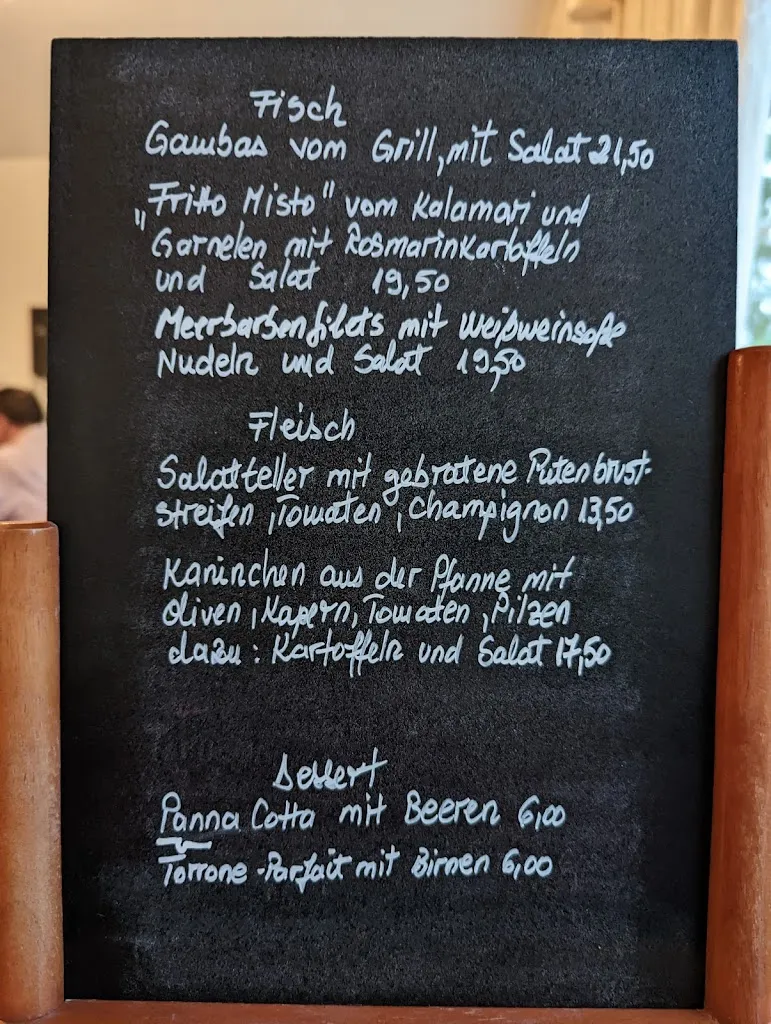 Fisch
Gambas vom Grill, mit Salat 21,50
„Fritto Misto" vom Kalamari und
Garnelen mit Rosmarinkartoffeln
und Salat 19,50
Meerbarbenfilets mit Weißweinsoße
Nudeln und Salat 19,50
Fleisch
Salatteller mit gebratene Putenbrust-
streifen, Tomaten, Champignon 13,50
Kaninchen aus der Pfanne mit
Oliven, Kapern, Tomaten, Pilzen
dazu: Kartoffeln und Salat 17,50
Dessert
Panna Cotta mit Beeren 6,00
Torrone-Parfait mit Birnen 6,00